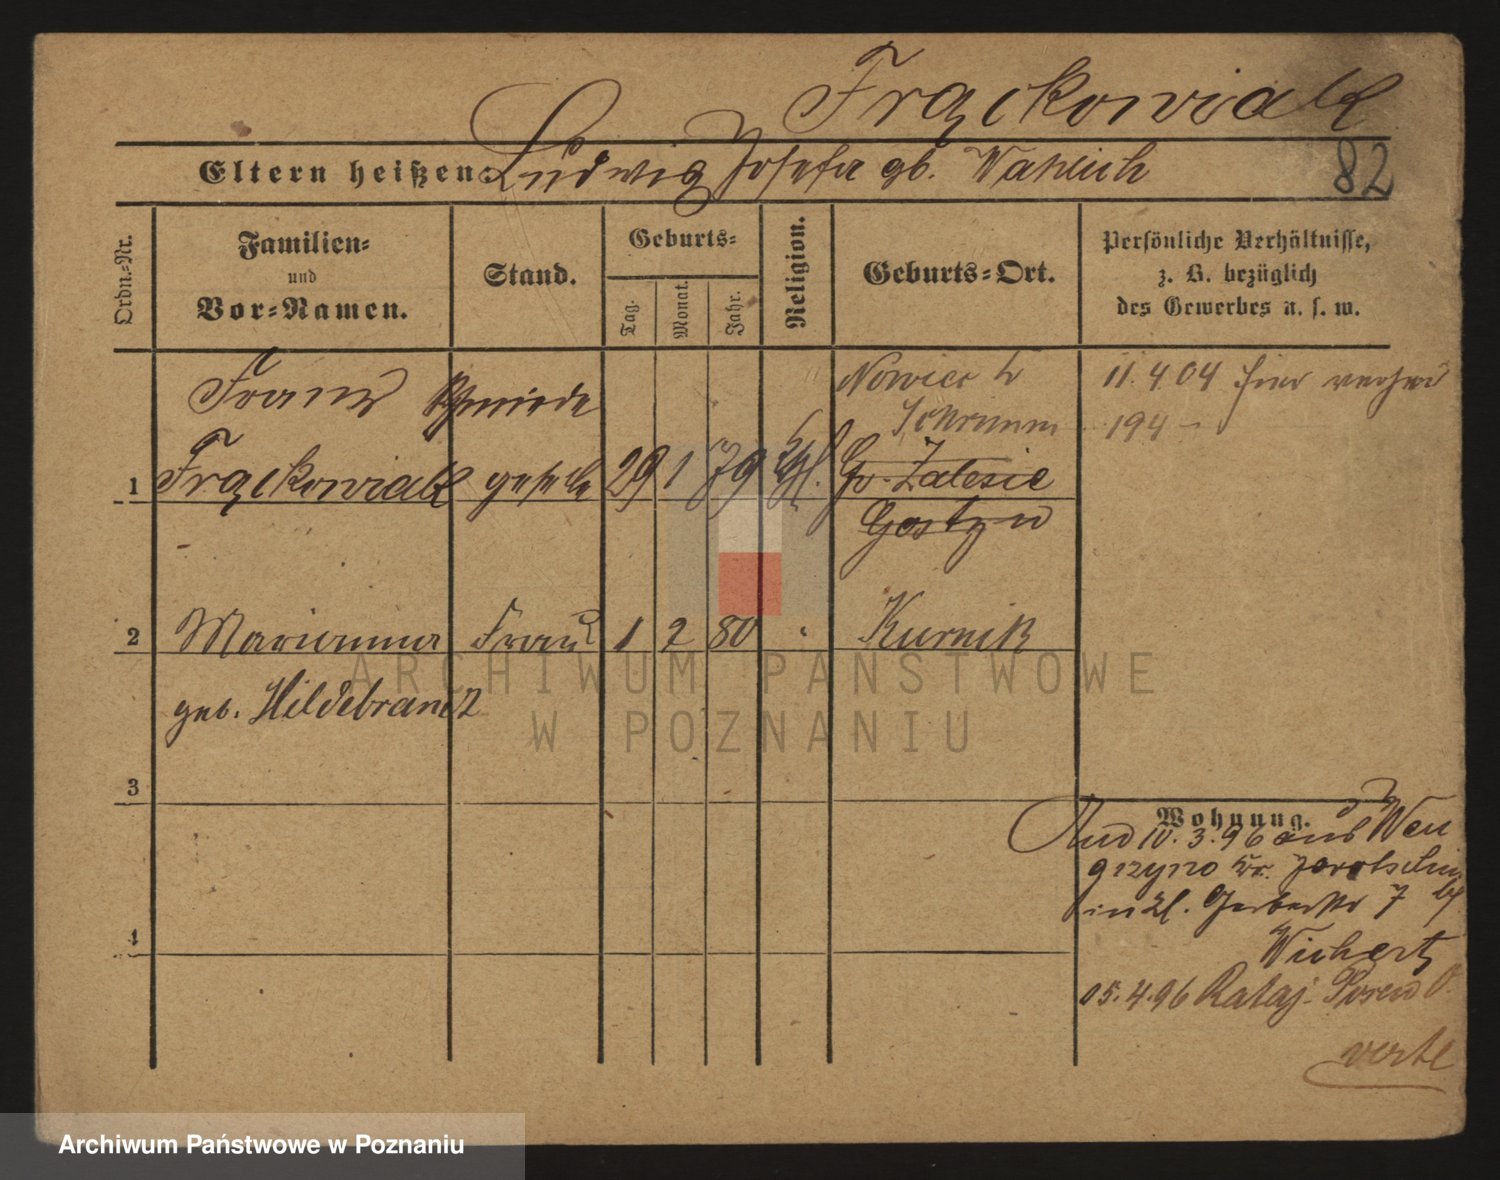 Frąckowiak
Eltern heißen: Ludwig Josefa gb. Wahlich
82
Ordn.-Nr.
Familien-
und
Vor-Namen.
Stand.
Geburts-
Tag.
Monat.
Jahr.
Religion.
Geburts-Ort.
Persönliche Verhältnisse,
z. B. bezüglich
des Gewerbes u. s. w.
Franz Schmiede
Nowiec
Schrimm
11.4.04 hier
194
1 Frąckowiak geselle 29 1 79 Gr. Zalesie
Gostyn
2 Marianna Frau 1 2 80 Kurnik
geb. Hildebrandt
3
4
Wohnung.
10.3.96 aus Wen
grzyno Kr. Jarotschin
in Gerberstr 7 bei
Wichert
05.4.96 Rataj Posen O.
verte
ARCHIWUM PAŃSTWOWE
W POZNANIU
Archiwum Państwowe w Poznaniu